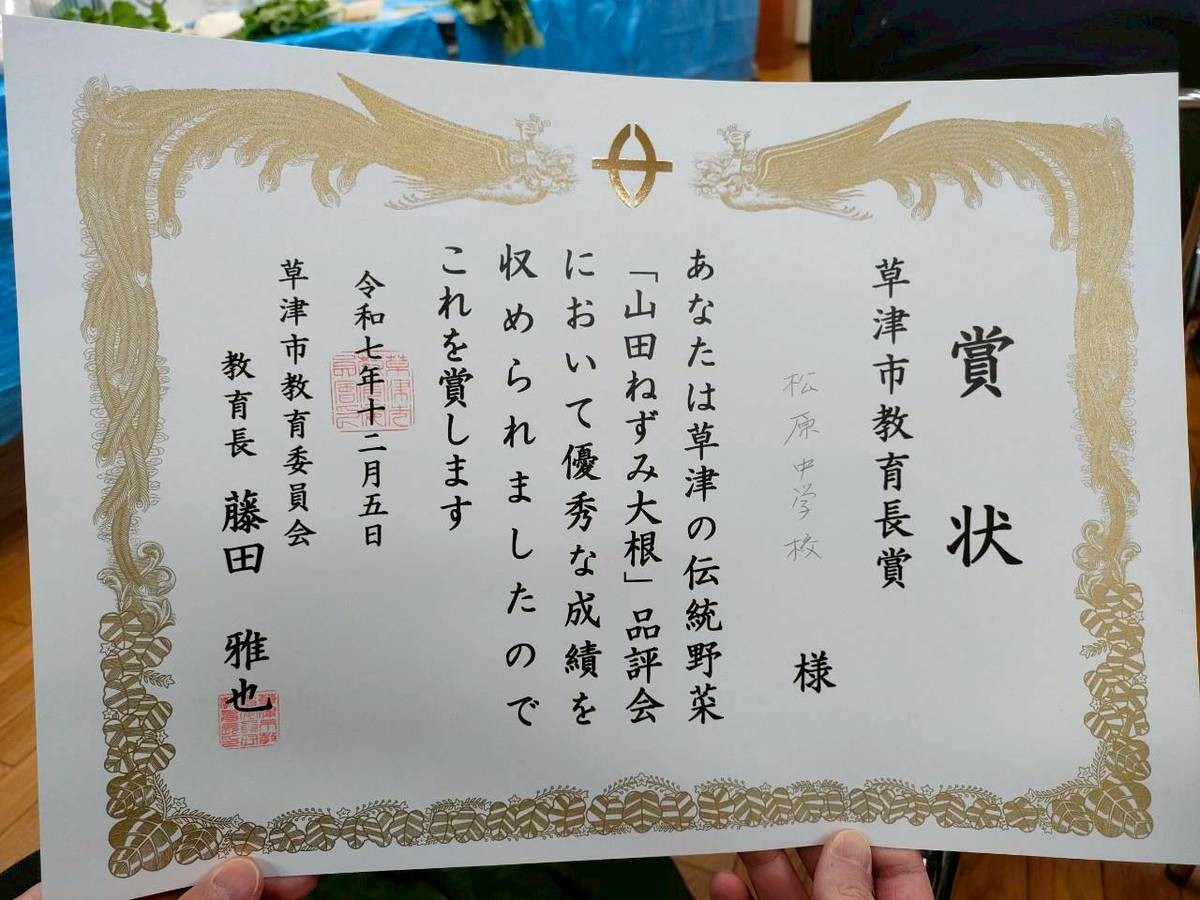 賞状
草津市教育長賞
松原中学校 様
あなたは草津の伝統野菜
「山田ねずみ大根」品評会
において優秀な成績を
収められましたので
これを賞します
令和七年十二月五日
草津市教育委員会
教育長 藤田 雅也